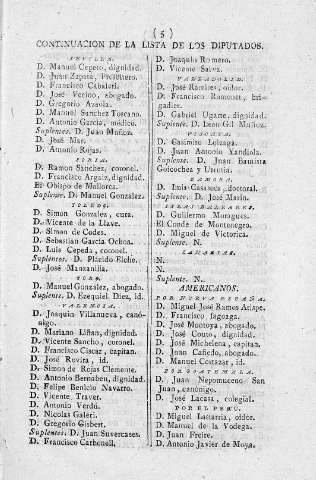 ( 5 )
CONTINUACION DE LA LISTA DE LOS DIPUTADOS.
SEVILLA.
D. Manuel Cepero, dignidad.
D. Juan Zapata, Presbítero.
D. Francisco Cabaleri.
D. José Vecino, abogado.
D. Gregorio Azaola.
D. Manuel Sanchez Toscano.
D. Antonio Garcia, médico.
Suplenes. D. Juan Muñoz.
D. José Mar.
D. Antonio Rojas.
SORIA.
D. Ramon Sanchez, coronel.
D. Francisco Argaiz, dignidad.
El Obispo de Mallorca.
Suplente. D. Manuel Gonzalez.
TOLEDO.
D. Simon Gonzalez, cura.
D. Vicente de la Llave.
D. Simon de Codes.
D. Sebastian Garcia Ochoa.
D. Luis Cepeda, coronel.
Suplentes. D. Plácido Elche.
D. José Manzanilla.
TORO.
D. Manuel Gonzalez, abogado.
Suplente. D. Ezequiel Diez, id.
VALENCIA.
D. Joaquin Villanueva, canó-
nigo.
D. Mariano Liñan, dignidad.
D. Vicente Sancho, coronel.
D. Francisco Ciscar, capitan.
D. José Rovira, id.
D. Simon de Rojas Clemente.
D. Antonio Bernabeu, dignidad.
D. Felipe Benicio Navarro.
D. Vicente Traver.
D. Antonio Verdú.
D. Nicolas Galeri.
D. Gregorio Gisbert.
Suplentes. D. Juan Suvercases.
D. Francisco Carbonell.
D. Joaquin Romero.
D. Vicente Salva.
VALLADOLID.
D. José Ramirez, oidor.
D. Francisco Ramonet, bri-
gadier.
D. Gabriel Ugarte, dignidad.
Suplente. D. Leon Gil Muñoz.
VIZCAYA.
D. Casimiro Loizaga.
D. Juan Antonio Yandiola.
Suplente. D. Juan Bautista
Goicochea y Urrutia.
ZAMORA.
D. Luis Casaseca, doctoral.
Suplente. D. José Marin.
ISLAS BALEARES.
D. Guillermo Moragues.
El Conde de Montenegro.
D. Miguel de Victorica.
Suplente. N.
CANARIAS.
N.
N.
Suplente. N.
AMERICANOS.
POR NUEVA ESPAÑA.
D. Miguel José Ramos Arispe.
D. Francisco Fagoaga.
D. José Montoya, abogado.
D. José Couto, dignidad.
D. José Michelena, capitan.
D. Juan Cañedo, abogado.
D. Manuel Cortazar, id.
POR GOATEMALA.
D. Juan Nepomuceno San
Juan, canónigo.
D. José Lacasa, colegial.
POR EL PERÚ.
D. Miguel Lastarria, oidor.
D. Manuel de la Vodega.
D. Juan Freire.
D. Antonio Javier de Moya.